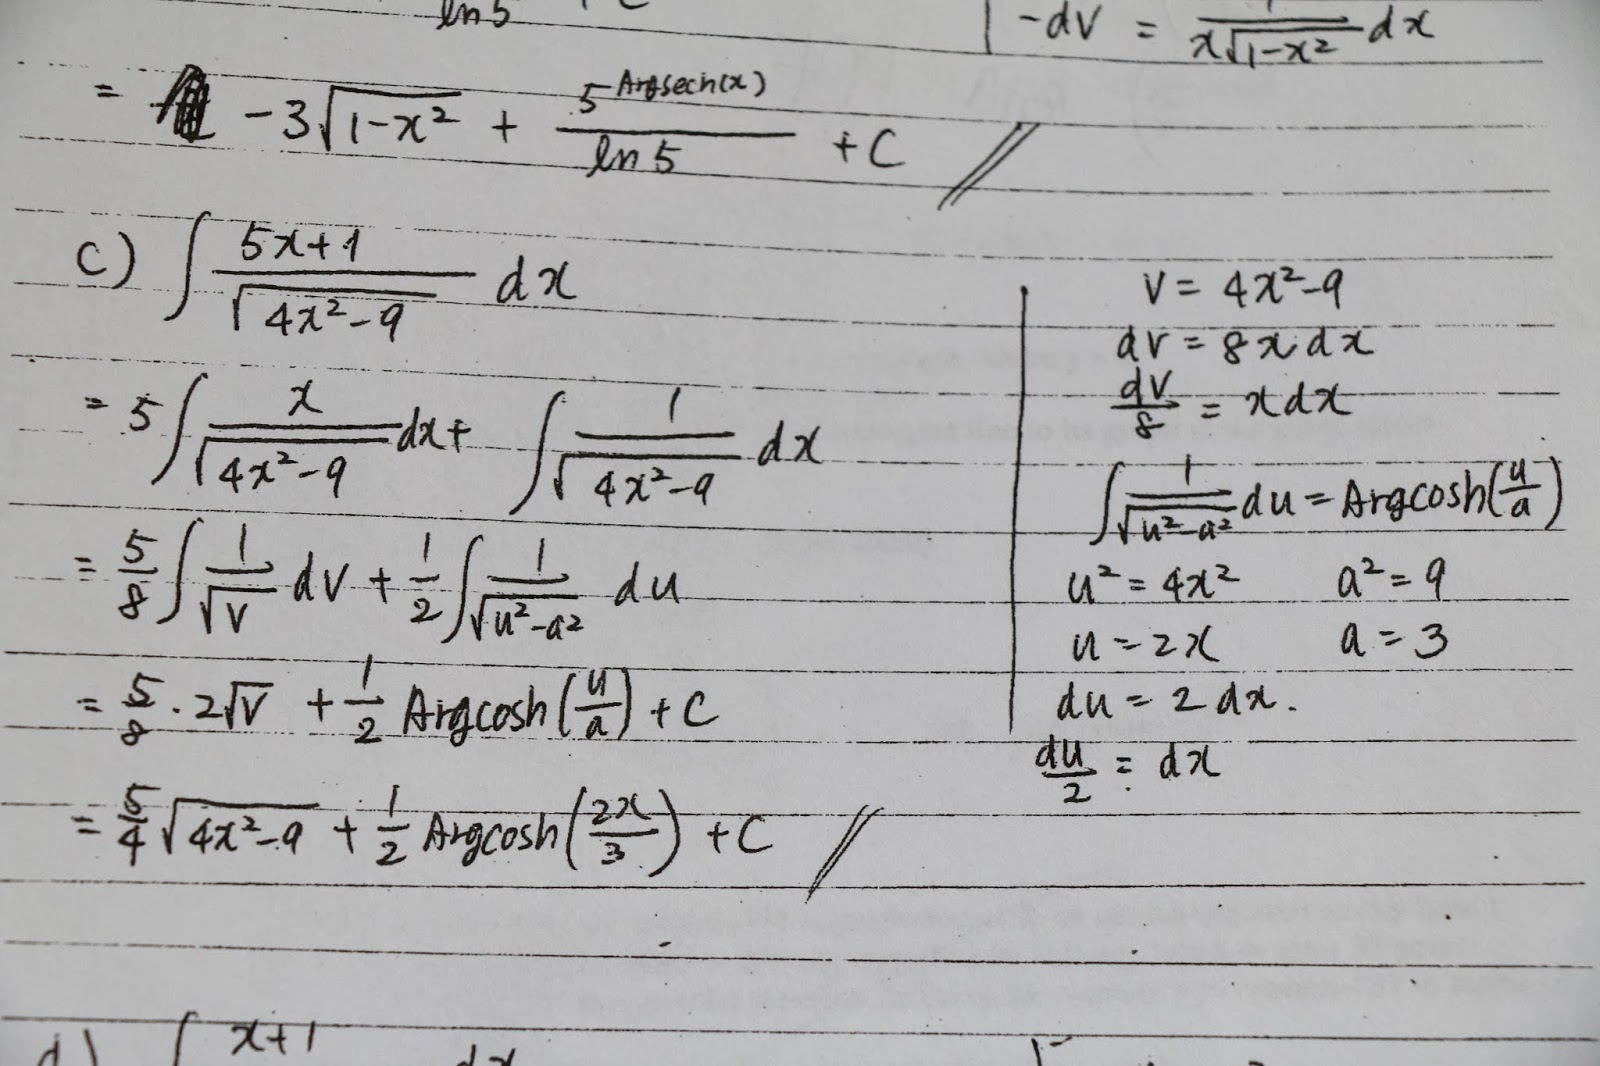 ln 5 + C
-dv = 1/(x√(1-x²)) dx
= -3√(1-x²) + 5^Argsech(x)/ln 5 + C
c) ∫ (5x+1)/√(4x²-9) dx
= 5∫ x/√(4x²-9) dx + ∫ 1/√(4x²-9) dx
= 5/8 ∫ 1/√v dv + 1/2 ∫ 1/√(u²-a²) du
= 5/8 · 2√v + 1/2 Argcosh(u/a) + C
= 5/4 √(4x²-9) + 1/2 Argcosh(2x/3) + C
v = 4x²-9
dv = 8x dx
dv/8 = x dx
∫ 1/√(u²-a²) du = Argcosh(u/a)
u² = 4x² a² = 9
u = 2x a = 3
du = 2 dx.
du/2 = dx
d) ∫ x+1 dx